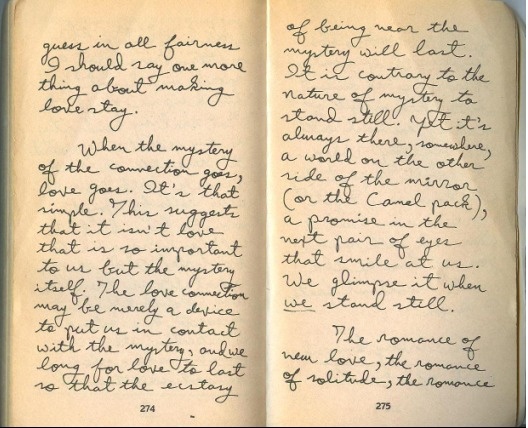 guess in all fairness
I should say one more
thing about making
love stay.
When the mystery
of the connection goes,
love goes. It's that
simple. This suggests
that it isn't love
that is so important
to us but the mystery
itself. The love connection
may be merely a device
to put us in contact
with the mystery, and we
long for love to last
so that the ecstasy
274
of being near the
mystery will last.
It is contrary to the
nature of mystery to
stand still. Yet it's
always there, somewhere,
a world on the other
side of the mirror
(or the Camel pack),
a promise in the
next pair of eyes
that smile at us.
We glimpse it when
we stand still.
The romance of
new love, the romance
of solitude, the romance
275